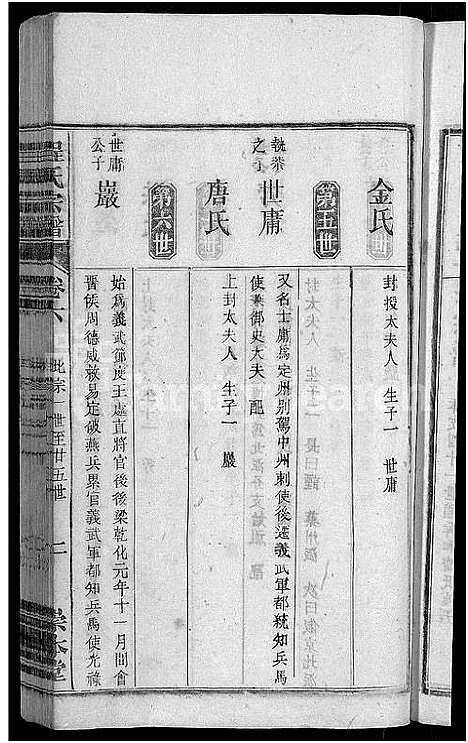 金氏
封投太夫人 生子一 世庸
第五世
執恭之子 世庸
又名士庸為定州別駕中州刺使後遷義武軍都統知兵馬
使兼御史大夫 配
唐氏
上封太夫人 生子一 巖
第六世
世庸公子 巖
始為義武節度王處直將官後後梁乾化元年十一月間會
晉侯周德威救易定破燕兵累官義武軍都知兵馬使光祿
程氏宗譜 卷六 此宗一世至廿五世 二 崇本堂